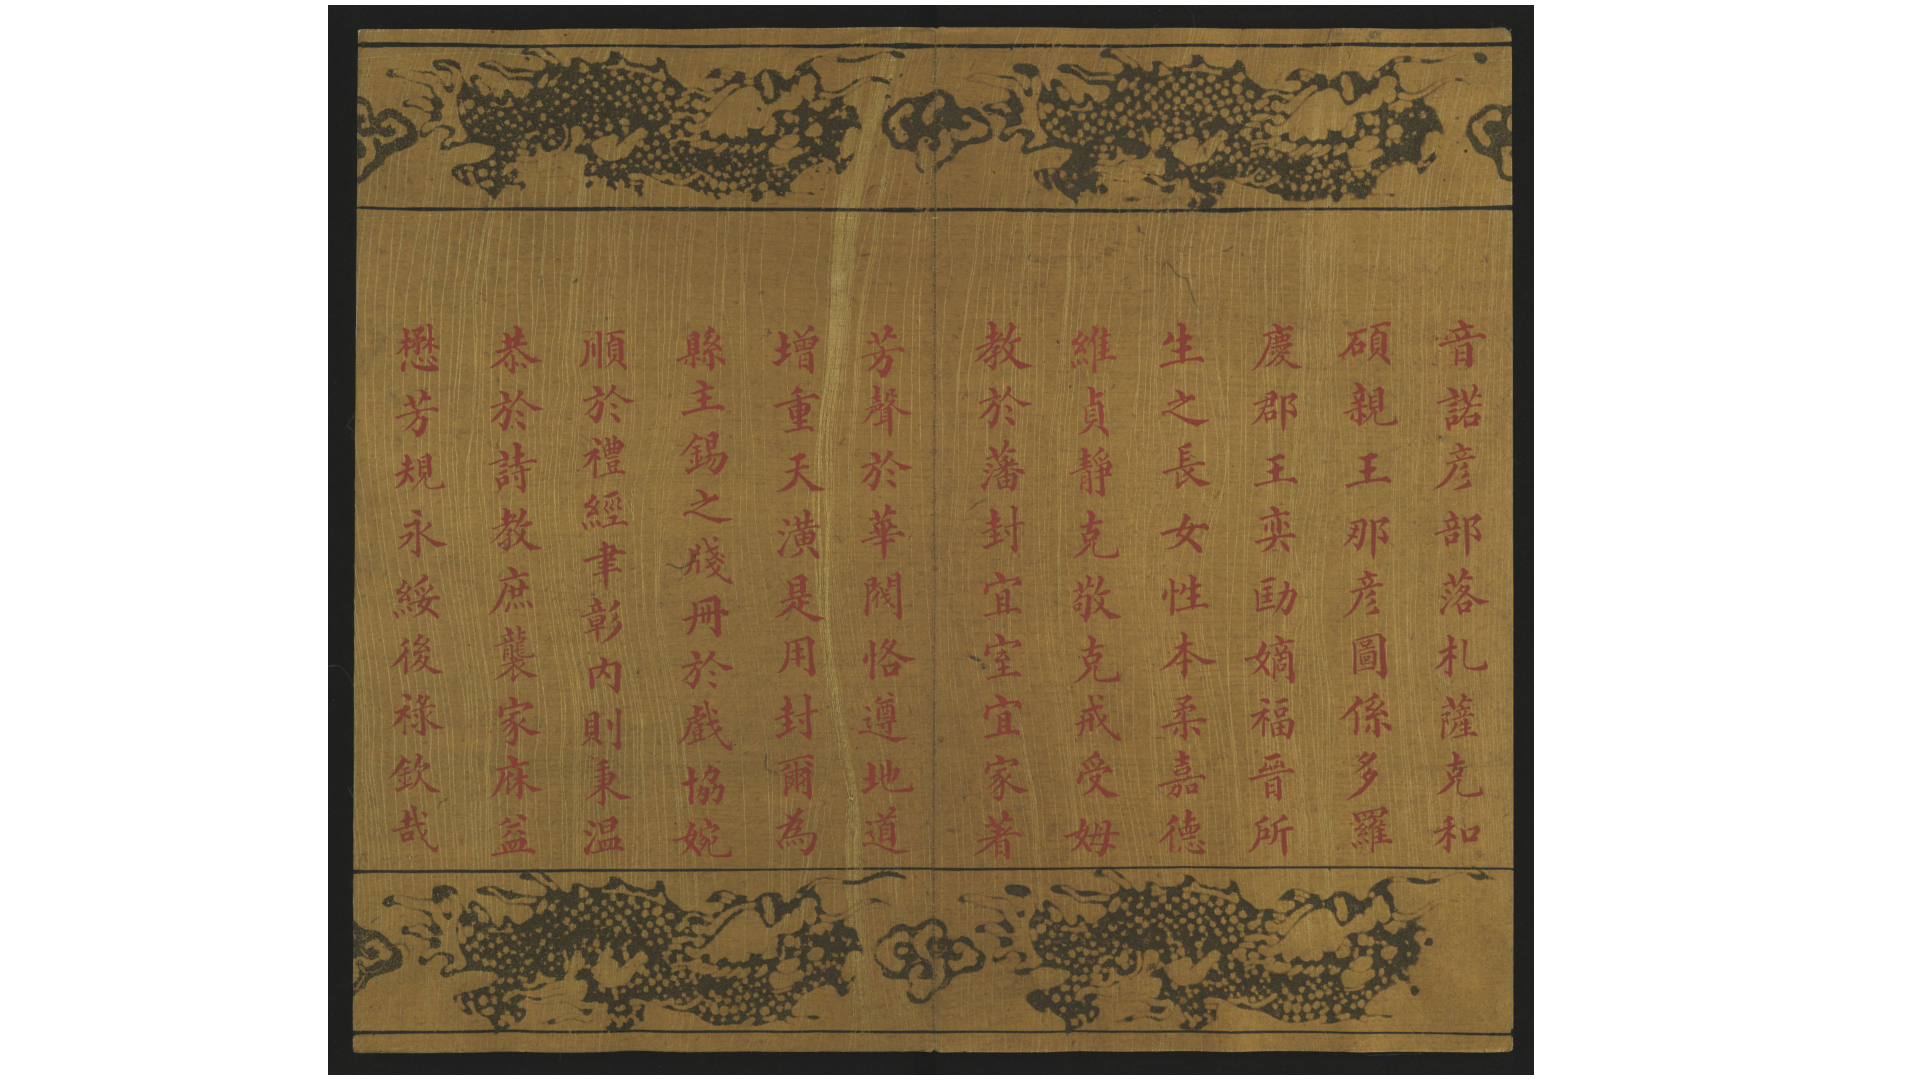 音諾彦部落札薩克和
碩親王那彦圖係多羅
慶郡王奕劻嫡福晉所
生之長女性本柔嘉德
維貞靜克敬克戒受姆
教於藩封宜室宜家著
芳聲於華閥恪遵地道
增重天潢是用封爾為
縣主錫之牋冊於戲協婉
順於禮經聿彰内則秉温
恭於詩教庶襲家庥益
懋芳規永綏後祿欽哉